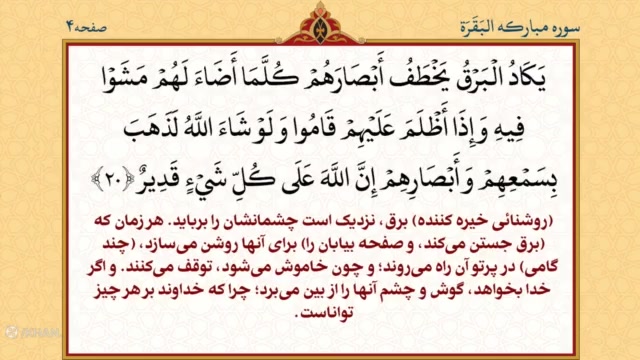 سوره مبارکه البَقَرَة
صفحه۴
يَكَادُ الْبَرْقُ يَخْطَفُ أَبْصَارَهُمْ كُلَّمَا أَضَاءَ لَهُمْ مَشَوْا
فِيهِ وَإِذَا أَظْلَمَ عَلَيْهِمْ قَامُوا وَلَوْ شَاءَ اللَّهُ لَذَهَبَ
بِسَمْعِهِمْ وَأَبْصَارِهِمْ إِنَّ اللَّهَ عَلَى كُلِّ شَيْءٍ قَدِيرٌ ﴿۲۰﴾
(روشنائی خیره کننده) برق، نزدیک است چشمانشان را برباید. هر زمان که
(برق جستن می‌کند، و صفحه بیابان را) برای آنها روشن می‌سازد، (چند
گامی) در پرتو آن راه می‌روند؛ و چون خاموش می‌شود، توقف می‌کنند. و اگر
خدا بخواهد، گوش و چشم آنها را از بین می‌برد؛ چرا که خداوند بر هر چیز
تواناست.